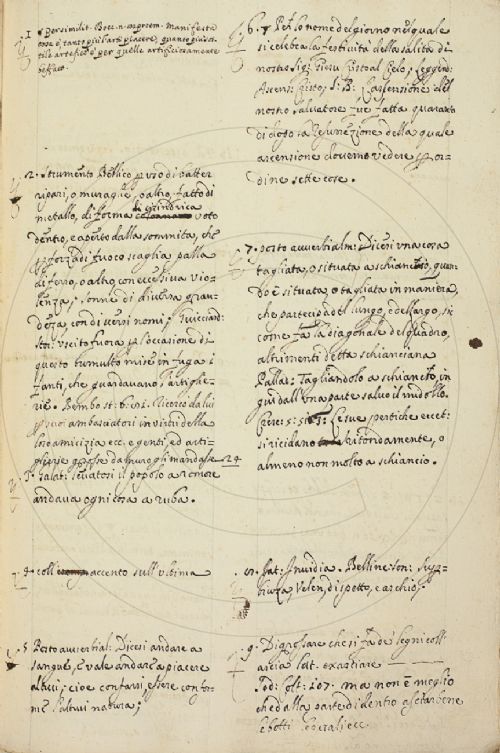 1. Per similit. Bocc. n.
cosa è, tanto più l'arte piacere, quanto più sot-
tile artefice è per quelle artificiosamente
beffato.
2. Strumento Bellico per uso di batter
ripari, o muraglie, o altro, fatto di
metallo, di forma cilindrica voto
dentro, e aperto dalla sommità, che
p forza di fuoco scaglia palla
di ferro, o altro, con eccessiva vio-
lenza; sonne di diverse gran-
dezza, con diversi nomi; Guicciard.
sto: uscito fuora p l'occasione di
questo tumulto mise in fuga i
fanti, che guardavano l'artiglie-
rie. Bembo st: 6: Ricerco da lui
ambasciatori in virtù della
loro amicizia ecc. e genti, ed arti-
glierie grosse da muro gli mandasse 24
3. Galat: levatosi il popolo a romore
andava ogni cosa a ruba.
4. coll' accento sull' ultima
5. Posto avverbial: Dicesi andare a
sangue, e vale andare a piacere
altrui; cioè confarsi, essere confor-
me l'altrui natura;
6. Pel nome del giorno nel quale
si celebra la festività della salita di
nostro Sig: Giesù Cristo al Cielo; Leggend:
Ascens: Cristo, S: B: L'ascensione del
nostro salvatore fue fatta quaranta
di dopo la resurrezione della quale
ascensione dovemo vedere p or-
dine sette cose.
7. posto avverbialm: Dicesi una cosa
tagliata, o situata a schiancìo, quan-
do è situata, o tagliata in maniera,
che partecipa del lungo, e del largo, sì
come fa la diagonale del quadro,
altrimenti detta schianciana
Pallad: Tagliandolo a schiancìo, in
qui dall' una parte salvo il midollo.
Cresc: 5: Le sue pertiche ecc. et:
si ricidano ritondamente, o
almeno non molto a schiancio.
8. Invidia. Bellinc: son:
Velen, dispetto, e archio;
9. Dignossare che si fa de' legni coll'
ascia lat. exasciare
Ped: Colt: 107: ma non è meglio
che dalla parte di dentro ascetar bene